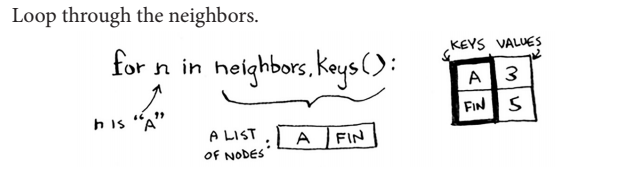 Loop through the neighbors.
for n in neighbors.keys():
n is "A"
A LIST
OF NODES:
A FIN
KEYS VALUES
A 3
FIN 5